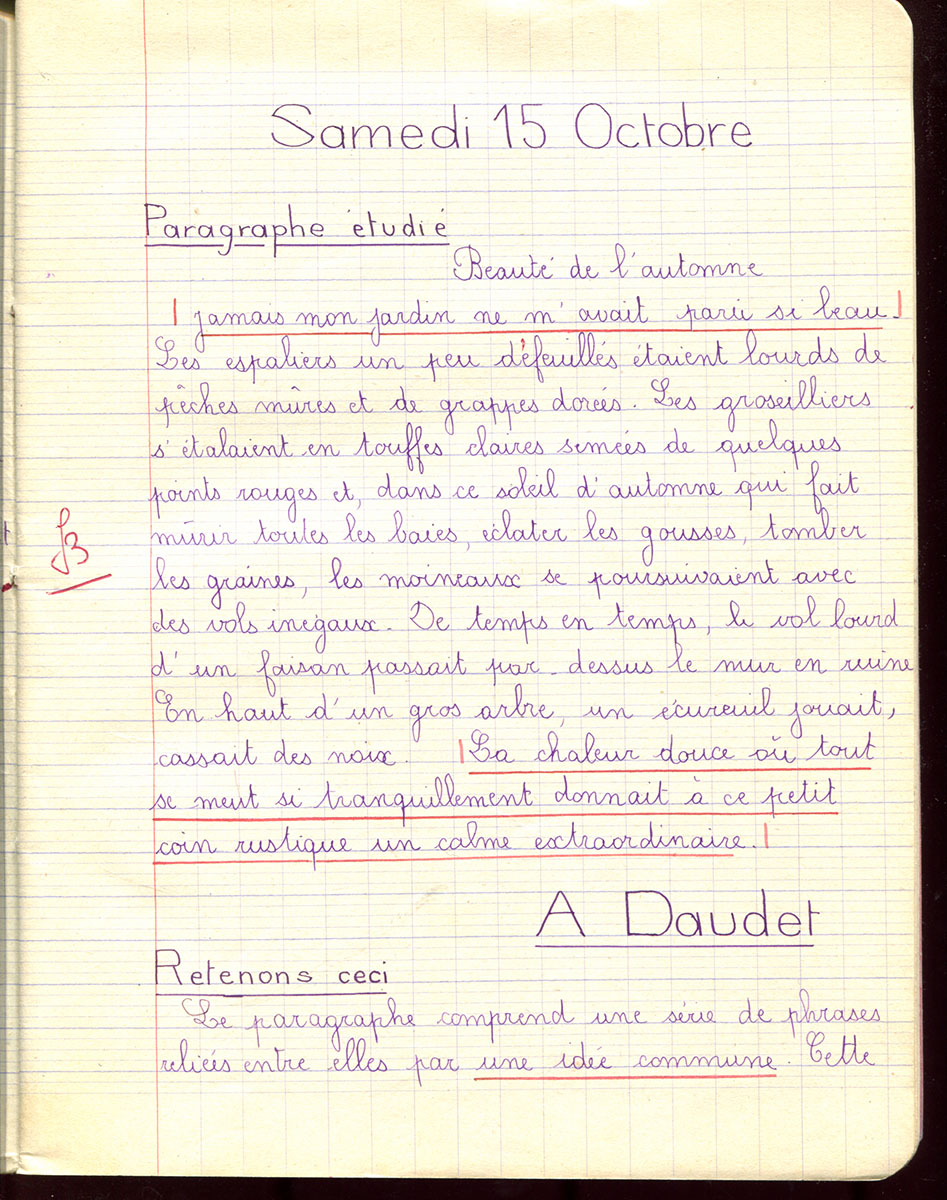 Samedi 15 Octobre
Paragraphe étudié
Beauté de l'automne
jamais mon jardin ne m'avait paru si beau.
Les espaliers un peu défeuillés étaient lourds de
pêches mûres et de grappes dorées. Les groseilliers
s'étalaient en touffes claires semées de quelques
points rouges et, dans ce soleil d'automne qui fait
mûrir toutes les baies, éclater les gousses, tomber
les graines, les moineaux se poursuivaient avec
des vols inégaux. De temps en temps, le vol lourd
d'un faisan passait par-dessus le mur en ruine
En haut d'un gros arbre, un écureuil jouait,
cassait des noix. La chaleur douce où tout
se meut si tranquillement donnait à ce petit
coin rustique un calme extraordinaire.
A Daudet
Retenons ceci
Le paragraphe comprend une série de phrases
reliées entre elles par une idée commune. Cette